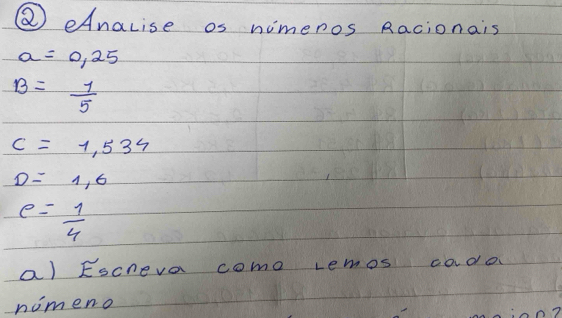 ② Analise os números Racionais
a = 0,25
B = 1/5
C = 1,534
D = 1,6
e = 1/4
a) Escreva como Lemos cada
número
é maior?